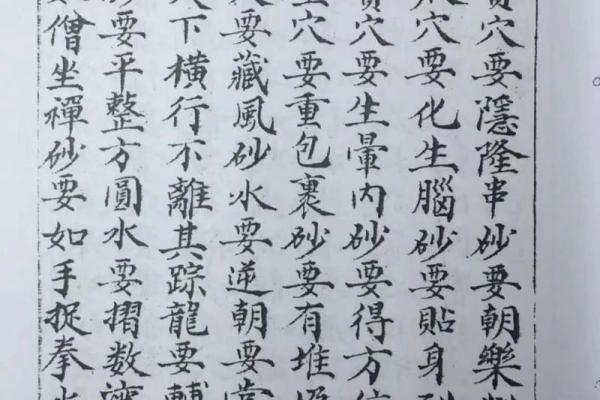 穴要隱隆串砂要朝樂
穴要化生腦砂要貼身
穴要生暈內砂要得方
穴要重包裹砂要有堆
要藏風砂水要逆朝要
下橫行不離其踪龍要輔
要平整方圓水要摺数
僧坐禪砂要如手捉拳